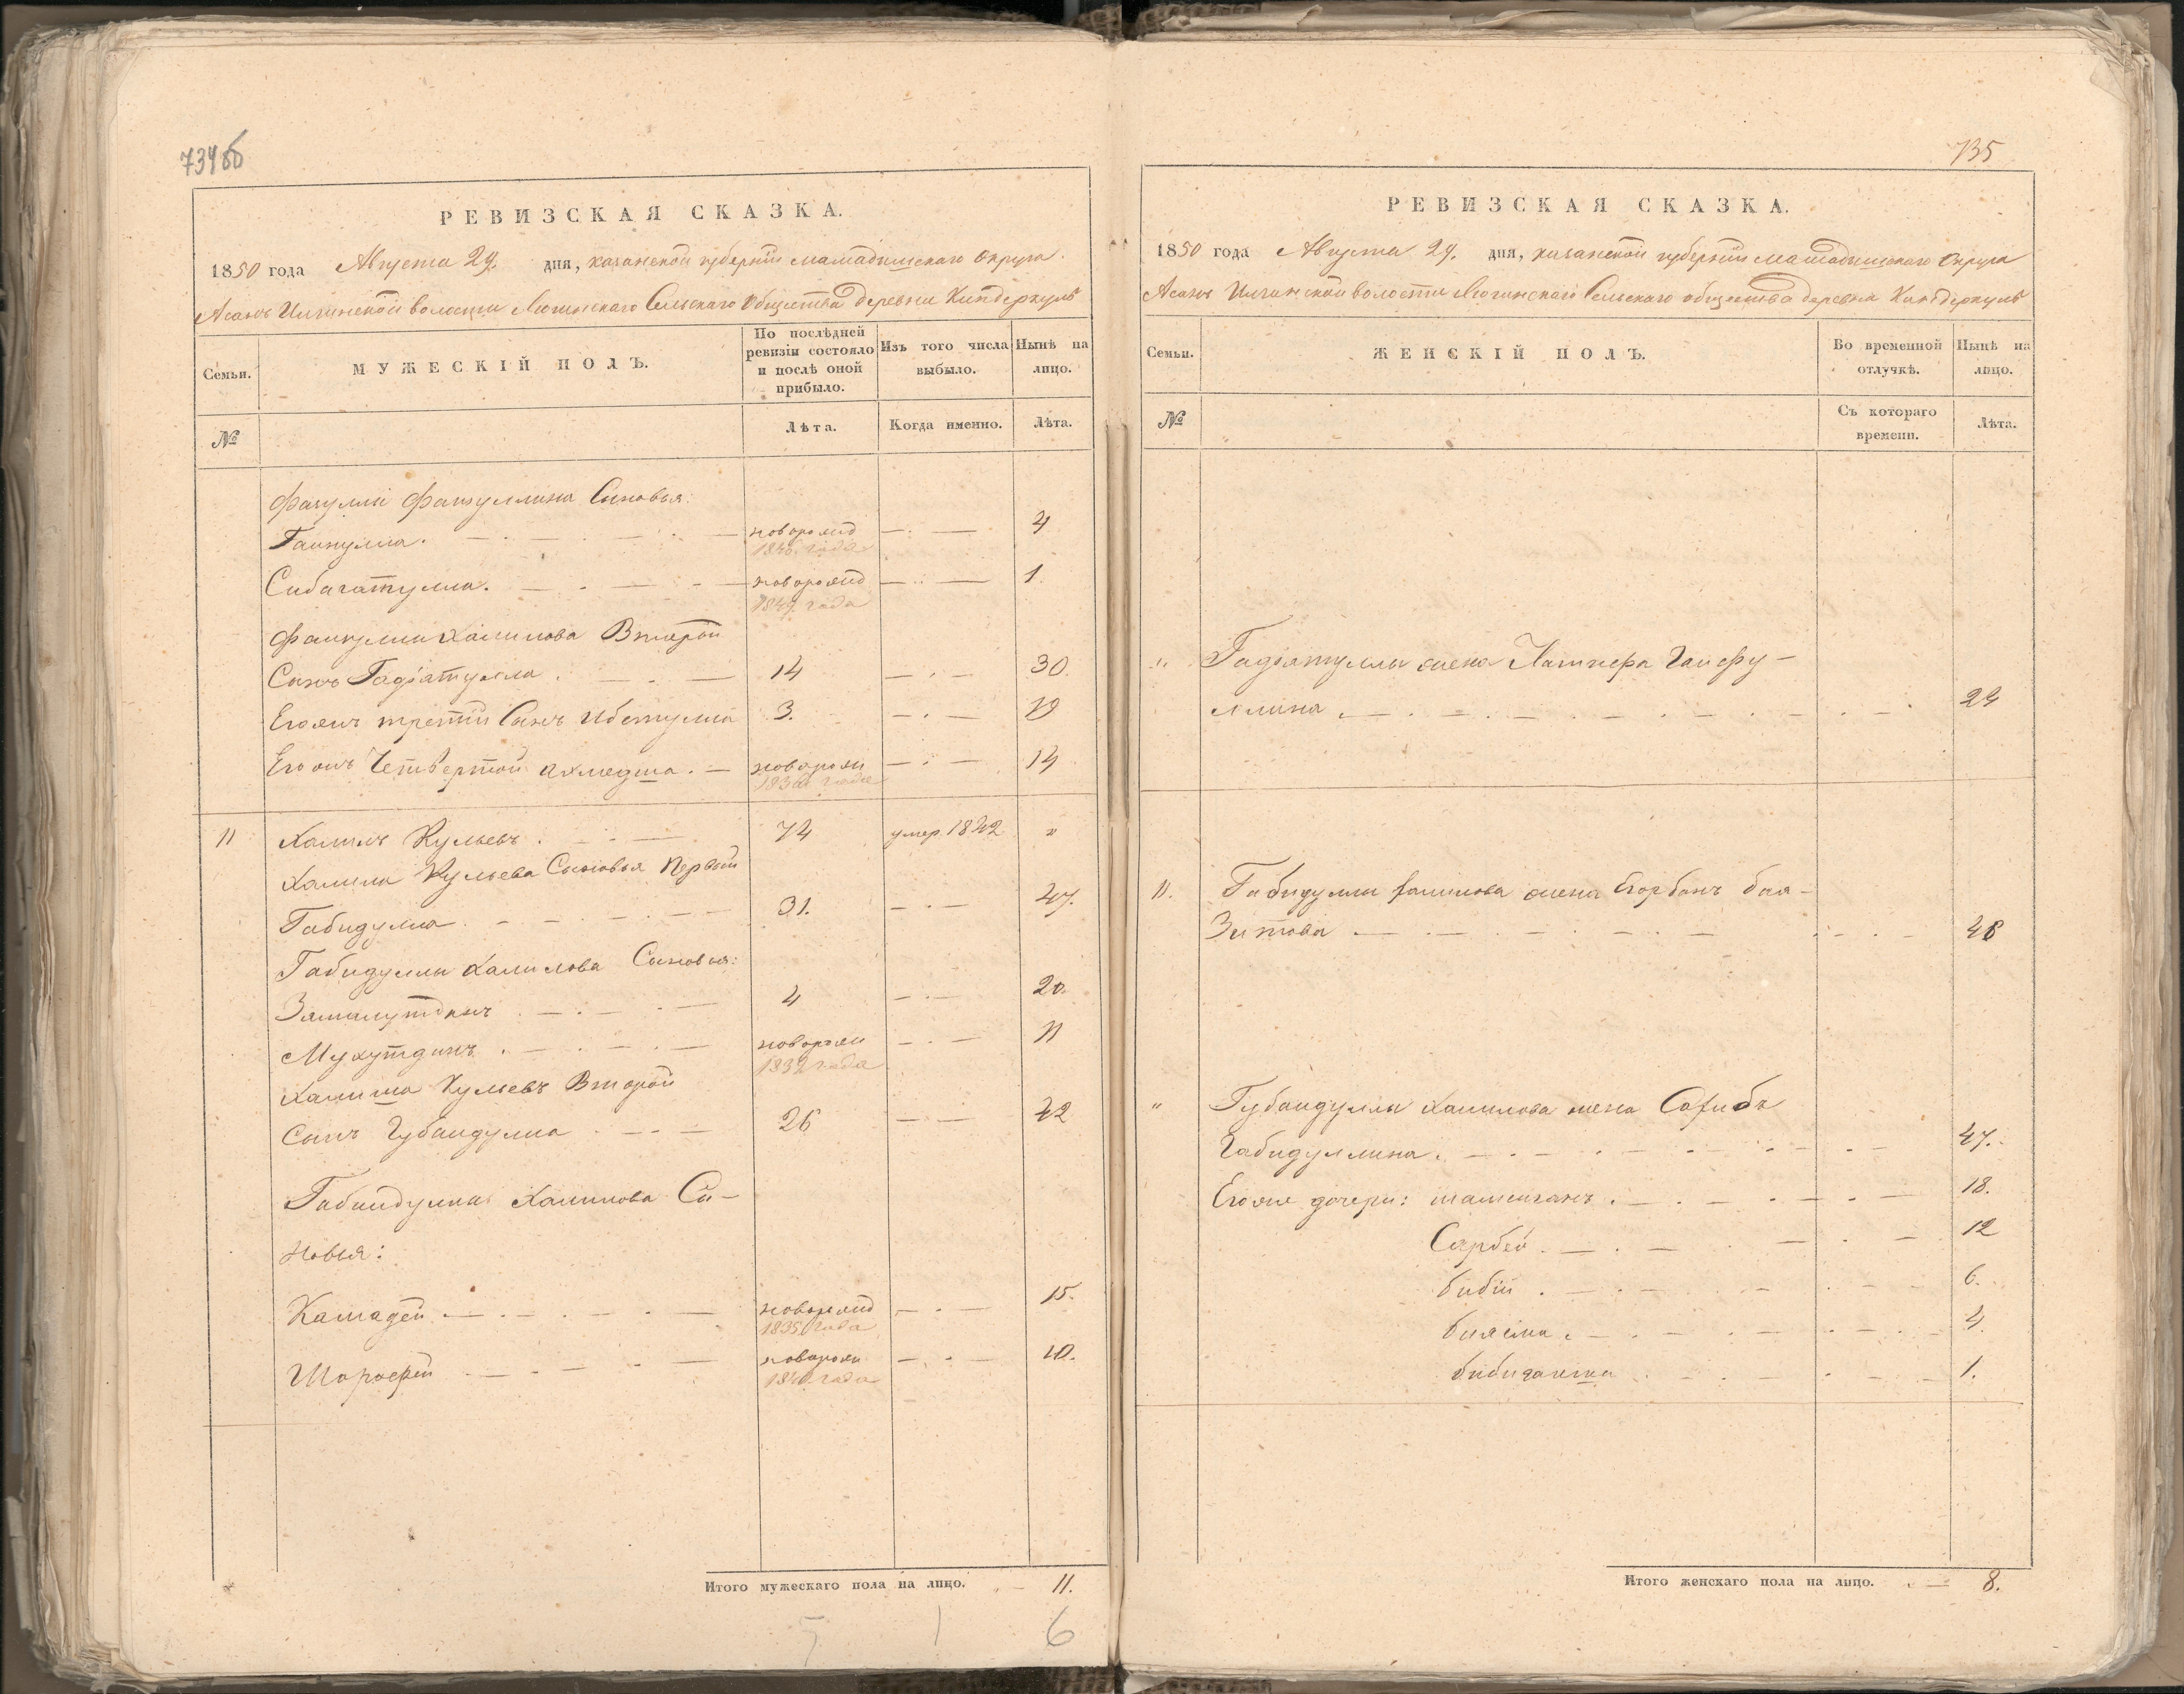 734об
РЕВИЗСКАЯ СКАЗКА.
1850 года Августа 29. дня, казанской губернiи мамадышскаго Округа
Асанъ Илгинской волости Люгинскаго Сельскаго Общества деревни Киндеркуль
Семьи.
МУЖЕСКІЙ ПОЛЪ.
По послѣдней ревизіи состояло и послѣ оной прибыло.
Изъ того числа выбыло.
Нынѣ на лицо.
№
Лѣта.
Когда именно.
Лѣта.
Сыновья:
новорожд 4
1846 года
Сибагатулла. новорожд 1.
1849 года
Халилова Второй
Сынъ Гадіатулла 14 30.
Егожъ третiй Сынъ Ибетулла 3. 19
Егожъ Четвертой ахмедша. новорож 14
1836 года
11 Халилъ Кульевъ 74 умер. 1842 "
Халила Кульева Сыновья Первый
Габидулла 31. 47.
Габидуллы Халилова Сыновья:
4 20.
новорож 11
года
Кульевъ Второй
Сынъ Губайдулла 26 42
Халилова Сы-
новья:
Камадей новорожд 15.
1835 года
новорож 10.
1840 года
Итого мужескаго пола на лицо. 11.
5 1 6
735
РЕВИЗСКАЯ СКАЗКА.
1850 года Августа 29. дня, казанской губернiи мамадышскаго Округа
Асанъ Илгинской волости Люгинскаго Сельскаго общества деревни Киндеркуль
Семьи.
ЖЕНСКІЙ ПОЛЪ.
Во временной отлучкѣ.
Нынѣ на лицо.
№
Съ котораго времени.
Лѣта.
" Гадіятуллы жена Гайфу-
ллина 24
11. Габидуллы Халилова жена бая-
Зитова 48
" Губайдуллы Халилова жена
Габидуллина. 47.
Егоже дочери: 18.
Сарбей 12
бибiй 6.
4.
1.
Итого женскаго пола на лицо. 8.